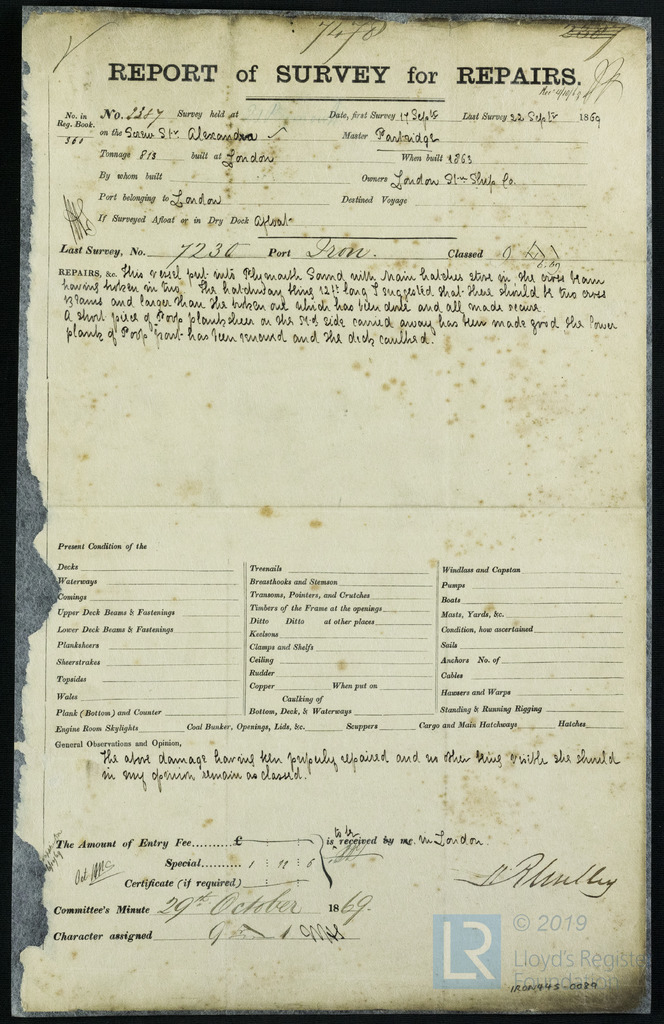 7478
REPORT of SURVEY for REPAIRS.
No. in Reg. Book. No. 2287 Survey held at Date, first Survey 14 Septr Last Survey 22 Septr 1869
361 on the Screw Str Alexandra Master Partridge
Tonnage 813 built at London When built 1863
By whom built Owners London Stm Ship Co.
Port belonging to London Destined Voyage
If Surveyed Afloat or in Dry Dock Afloat
Last Survey, No. 7236 Port Iron. Classed
REPAIRS, &c. This vessel put into Plymouth Sound with Main hatches stove in the cross beam
having broken in two. The hatchway being 12ft long I suggested that there should be two cross
Beams and larger than the broken one which has been done and all made secure.
A short piece of Poop planksheer on the side carried away has been made good the lower
planks of Poop front has been renewed and the deck caulked.
Present Condition of the
Decks
Waterways
Comings
Upper Deck Beams & Fastenings
Lower Deck Beams & Fastenings
Planksheers
Sheerstrakes
Topsides
Wales
Plank (Bottom) and Counter
Treenails
Breasthooks and Stemson
Transoms, Pointers, and Crutches
Timbers of the Frame at the openings
Ditto Ditto at other places
Keelsons
Clamps and Shelfs
Ceiling
Rudder
Copper When put on
Caulking of
Bottom, Deck, & Waterways
Windlass and Capstan
Pumps
Boats
Masts, Yards, &c.
Condition, how ascertained
Sails
Anchors No. of
Cables
Hawsers and Warps
Standing & Running Rigging
Engine Room Skylights Coal Bunker, Openings, Lids, &c. Scuppers Cargo and Main Hatchways Hatches
General Observations and Opinion,
The above damage having been properly repaired and no other being visible she should
in my opinion remain as classed.
The Amount of Entry Fee.......... £ : : to be
is received by me. in London.
Special.......... 1 : 11 : 6
Certificate (if required) : :
Committee's Minute 29th October 1869.
Character assigned
LR © 2019
Lloyd's Registe
Foundation
IRON445-0089